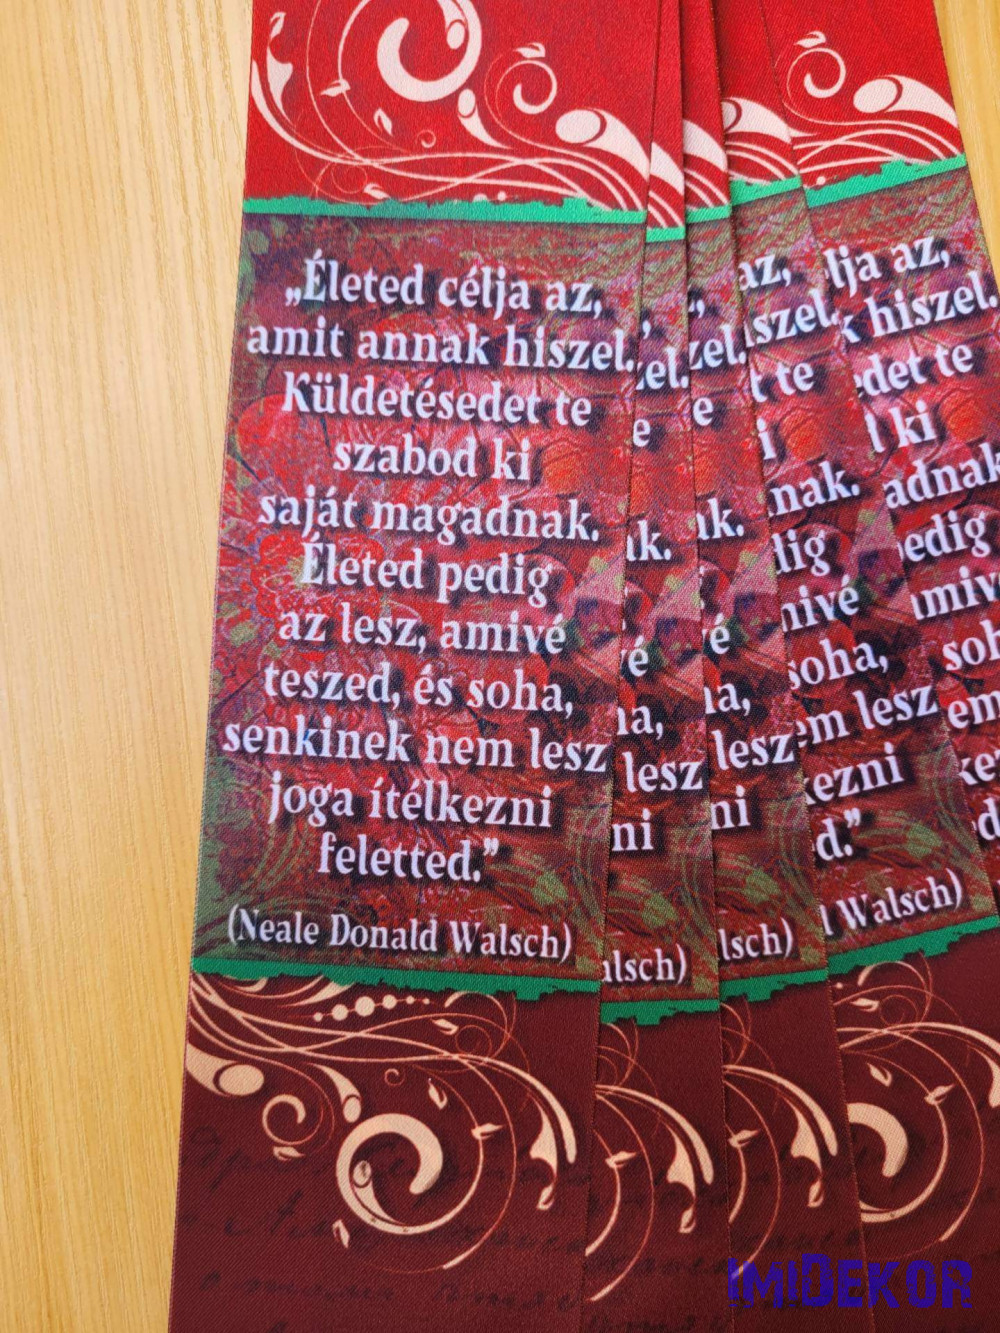 „Életed célja az,
amit annak hiszel.
Küldetésedet te
szabod ki
saját magadnak.
Életed pedig
az lesz, amivé
teszed, és soha,
senkinek nem lesz
joga ítélkezni
feletted.”
(Neale Donald Walsch)
IMIDEKOR